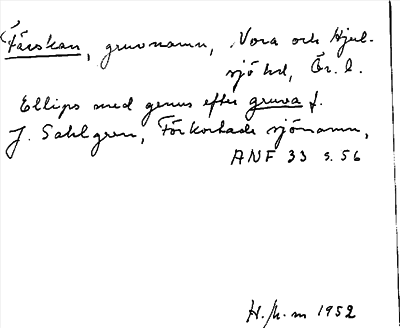 Färskan, gruvnamn, Nora och Hjul-
sjö hd, Ör. l.
Ellips med genus efter gruva f.
J. Sahlgren, Förkortade sjönamn,
ANF 33 s. 56
H. 1952